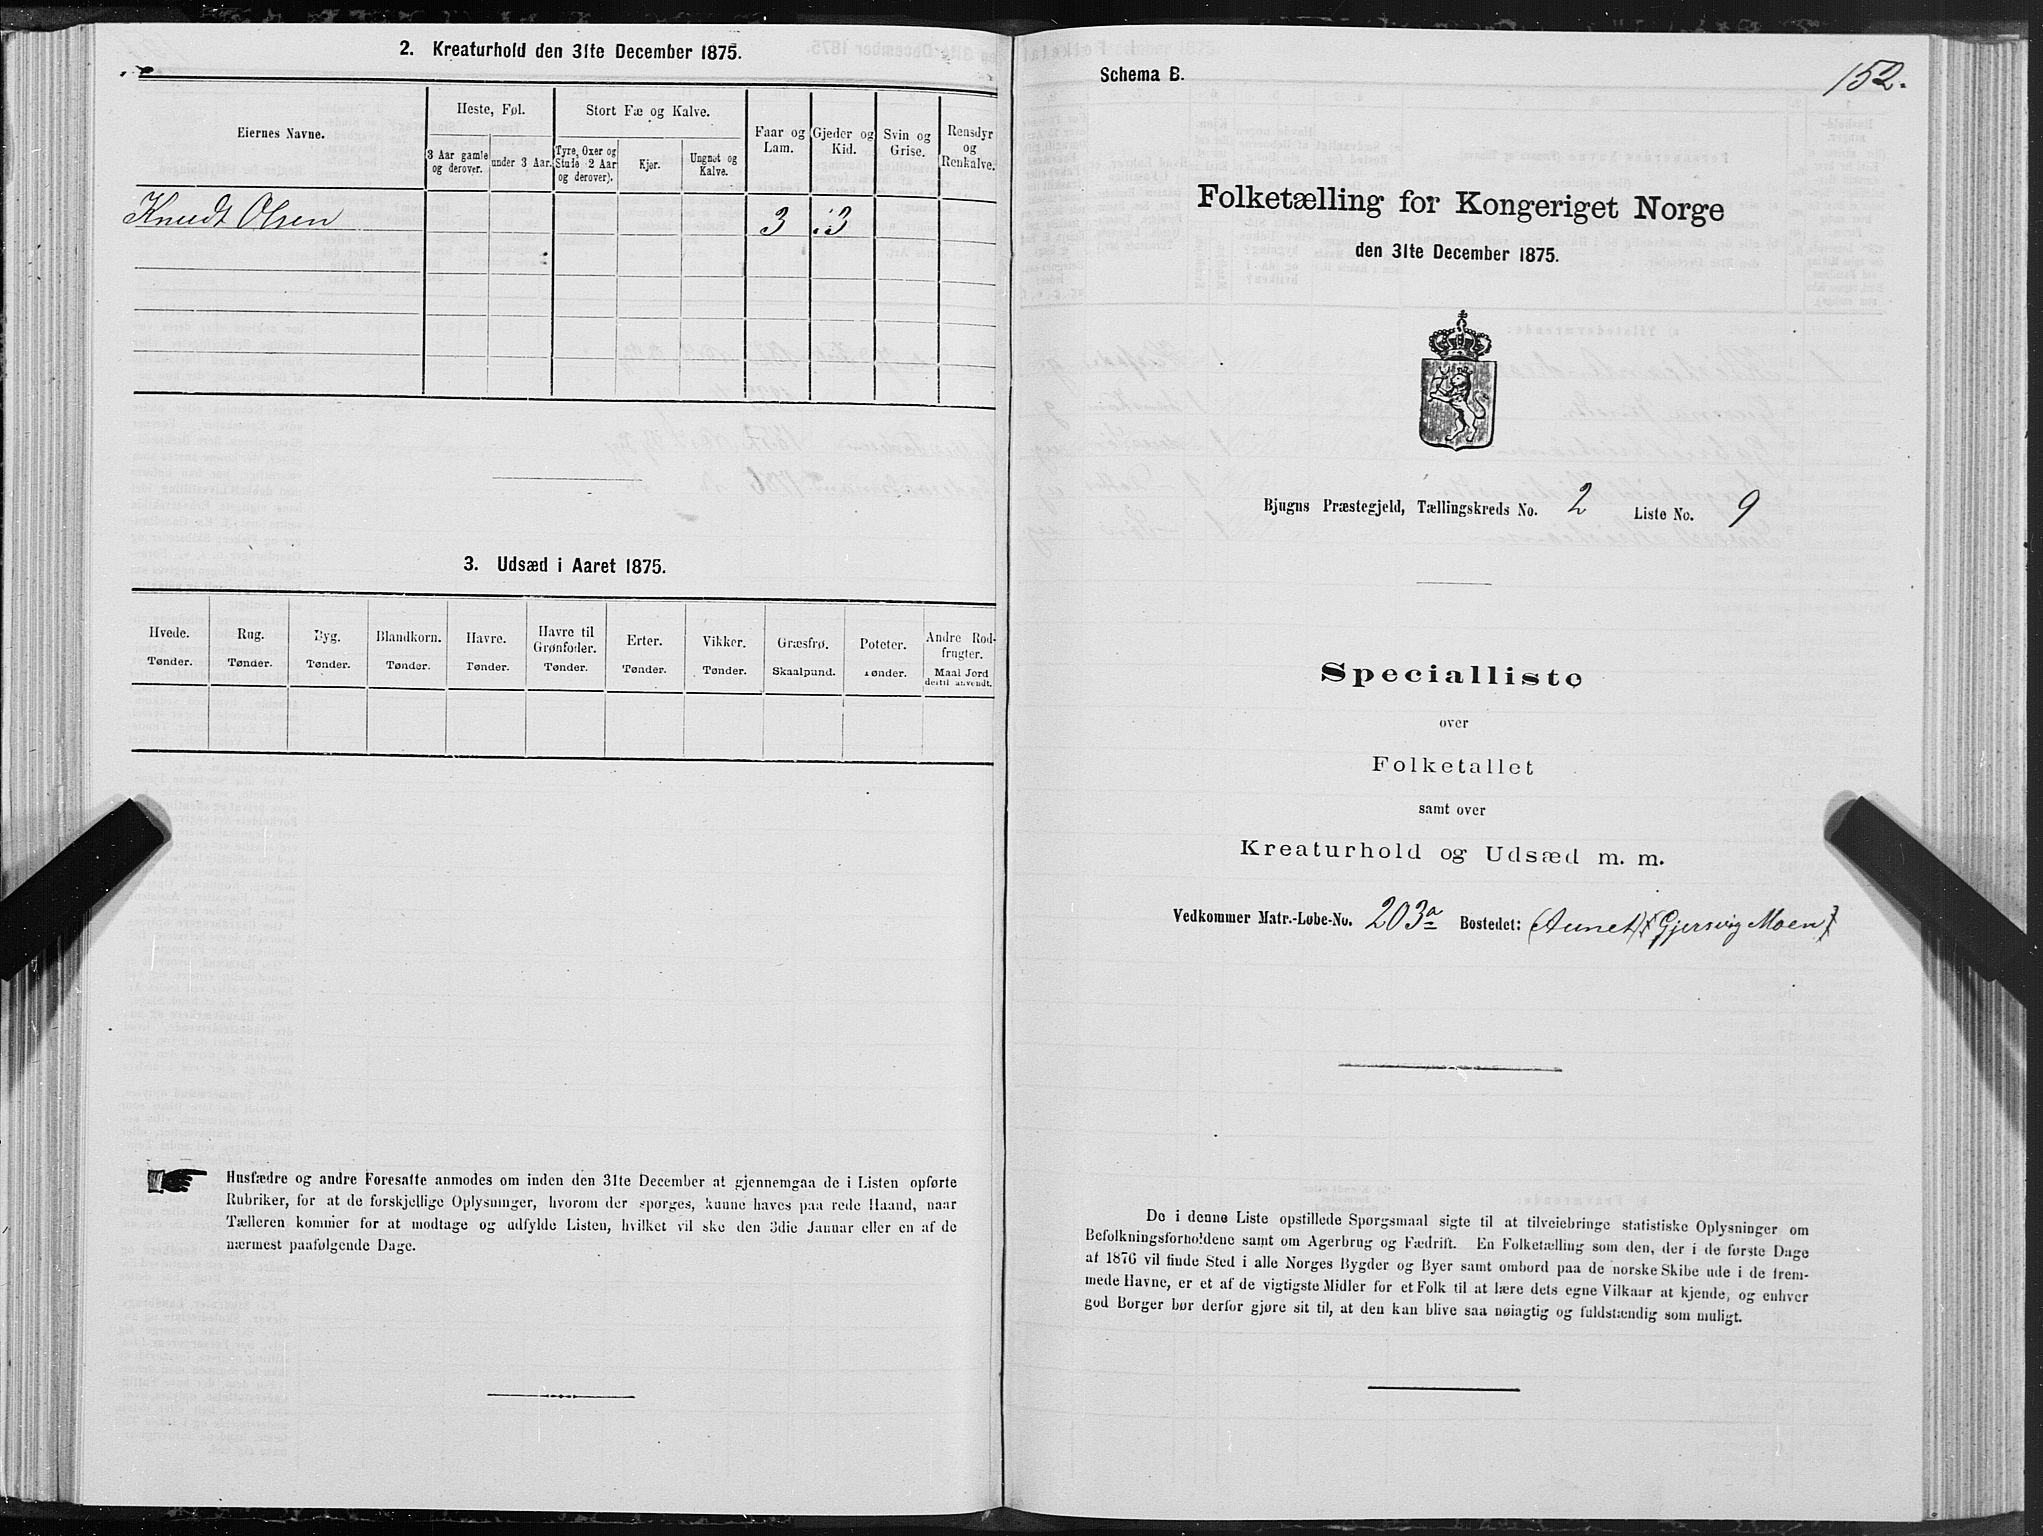 2. Kreaturhold den 31te December 1875.
Eiernes Navne.
Heste, Føl.
Stort Fæ og Kalve.
Faar og Lam.
Gjeder og Kid.
Svin og Grise.
Rensdyr og Renkalve.
3 Aar gamle og derover.
under 3 Aar.
Tyre, Oxer og Stude 2 Aar og derover).
Kjør.
Ungnøt og Kalve.
Knudt Olsen 3 3
3. Udsæd i Aaret 1875.
Hvede. Rug. Byg. Blandkorn. Havre. Havre til Grønfoder. Erter. Vikker. Græsfrø. Poteter. Andre Rodfrugter.
Tønder. Tønder. Tønder. Tønder. Tønder. Tønder. Tønder. Tønder. Skaalpund. Tønder. Maal Jord dertil anvendt.
Husfædre og andre Foresatte anmodes om inden den 31te December at gjennemgaa de i Listen opførte
Rubriker, for at de forskjellige Oplysninger, hvorom der spørges, kunne haves paa rede Haand, naar
Tælleren kommer for at modtage og udfylde Listen, hvilket vil ske den 3die Januar eller en af de
nærmest paafølgende Dage.
Schema B.
152.
Folketælling for Kongeriget Norge
den 31te December 1875.
Bjugns Præstegjeld, Tællingskreds No. 2 Liste No. 9
Specialliste
over
Folketallet
samt over
Kreaturhold og Udsæd m. m.
Vedkommer Matr.-Løbe-No. 203a Bostedet: (Aunet) (Gjersvig Moen)
De i denne Liste opstillede Spørgsmaal sigte til at tilveiebringe statistiske Oplysninger om
Befolkningsforholdene samt om Agerbrug og Fædrift. En Folketælling som den, der i de første Dage
af 1876 vil finde Sted i alle Norges Bygder og Byer samt ombord paa de norske Skibe ude i de frem-
mede Havne, er et af de vigtigste Midler for et Folk til at lære dets egne Vilkaar at kjende, og enhver
god Borger bør derfor gjøre sit til, at den kan blive saa nøiagtig og fuldstændig som muligt.